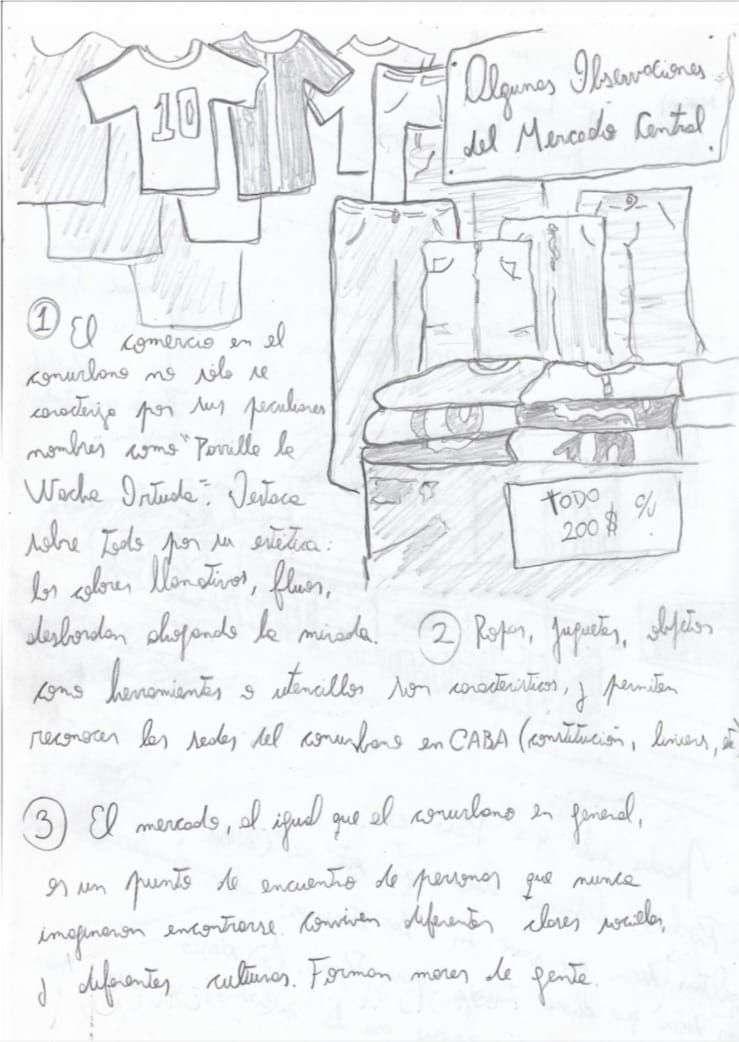 Algunas Observaciones
del Mercado Central
10
① El comercio en el
conurbano no sólo se
caracteriza por sus peculiares
nombres como "Parrilla la
Vacha Intuda". Destaca
sobre todo por su estética:
los colores llamativos, fluos,
desbordan ahogando la mirada.
TODO
200$ c/u
② Ropas, juguetes, objetos
como herramientas o utencillos son característicos, y permiten
reconocer las sedes del conurbano en CABA (constitución, liniers, etc)
③ El mercado, al igual que el conurbano en general,
es un punto de encuentro de personas que nunca
imaginaron encontrarse. Conviven diferentes clases sociales,
y diferentes culturas. Forman mares de gente.